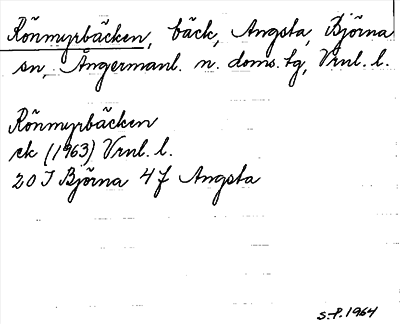 Rönmyrbäcken, bäck, Angsta, Björna
sn, Ångermanl. n. doms. tg, Vrnl. l.
Rönmyrbäcken
ek (1963) Vrnl. l.
20 I Björna 4 f Angsta
S.P. 1964